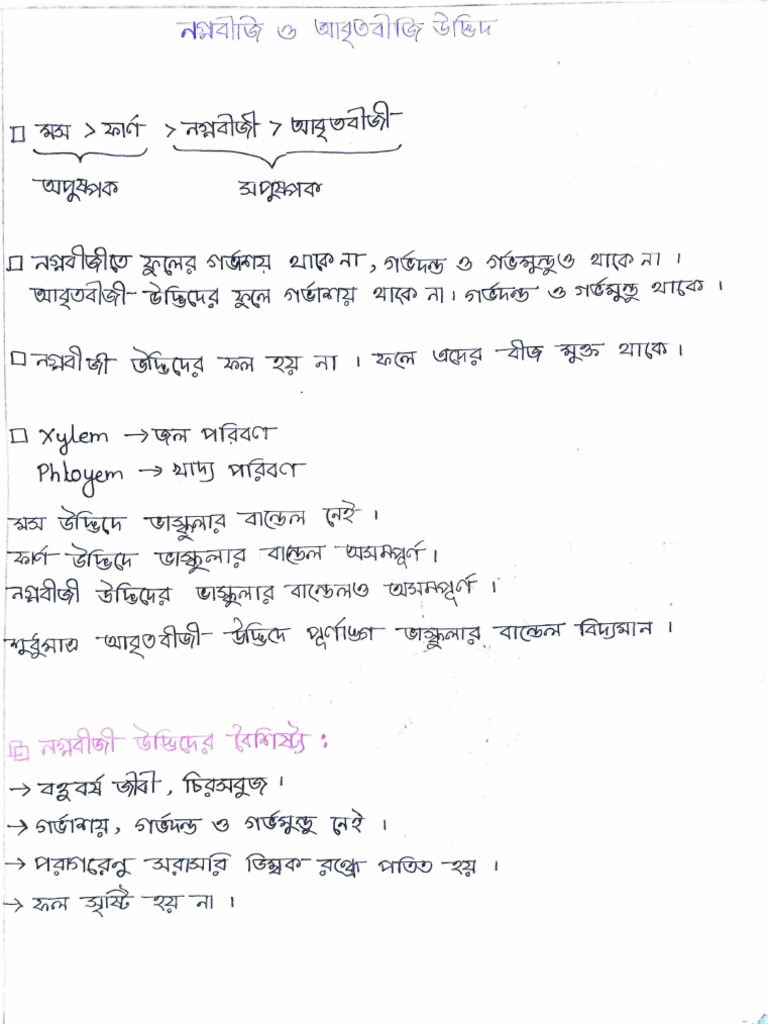 নগ্নবীজি ও আবৃতবীজি উদ্ভিদ
□ মস > ফার্ণ > নগ্নবীজী > আবৃতবীজী
অপুষ্পক সপুষ্পক
□ নগ্নবীজীতে ফুলের গর্ভাশয় থাকে না, গর্ভদন্ড ও গর্ভমুন্ডুও থাকে না।
আবৃতবীজী উদ্ভিদের ফুলে গর্ভাশয় থাকে না। গর্ভদন্ড ও গর্ভমুন্ডু থাকে।
□ নগ্নবীজী উদ্ভিদের ফল হয় না। ফলে এদের বীজ মুক্ত থাকে।
□ Xylem → জল পরিবণ
Phloyem → খাদ্য পরিবণ
মস উদ্ভিদে ভাস্কুলার বান্ডেল নেই।
ফার্ণ উদ্ভিদে ভাস্কুলার বান্ডেল অসমপূর্ণ।
নগ্নবীজী উদ্ভিদের ভাস্কুলার বান্ডেলও অসমপূর্ণ।
শুধুমাত্র আবৃতবীজী উদ্ভিদে পূর্ণাঙ্গ ভাস্কুলার বান্ডেল বিদ্যমান।
নগ্নবীজী উদ্ভিদের বৈশিষ্ট্য :
→ বহুবর্ষ জীবী, চিরসবুজ।
→ গর্ভাশয়, গর্ভদন্ড ও গর্ভমুন্ডু নেই।
→ পরাগরেনু সরাসরি ডিম্বক রন্ধ্রে পতিত হয়।
→ ফল সৃষ্টি হয় না।